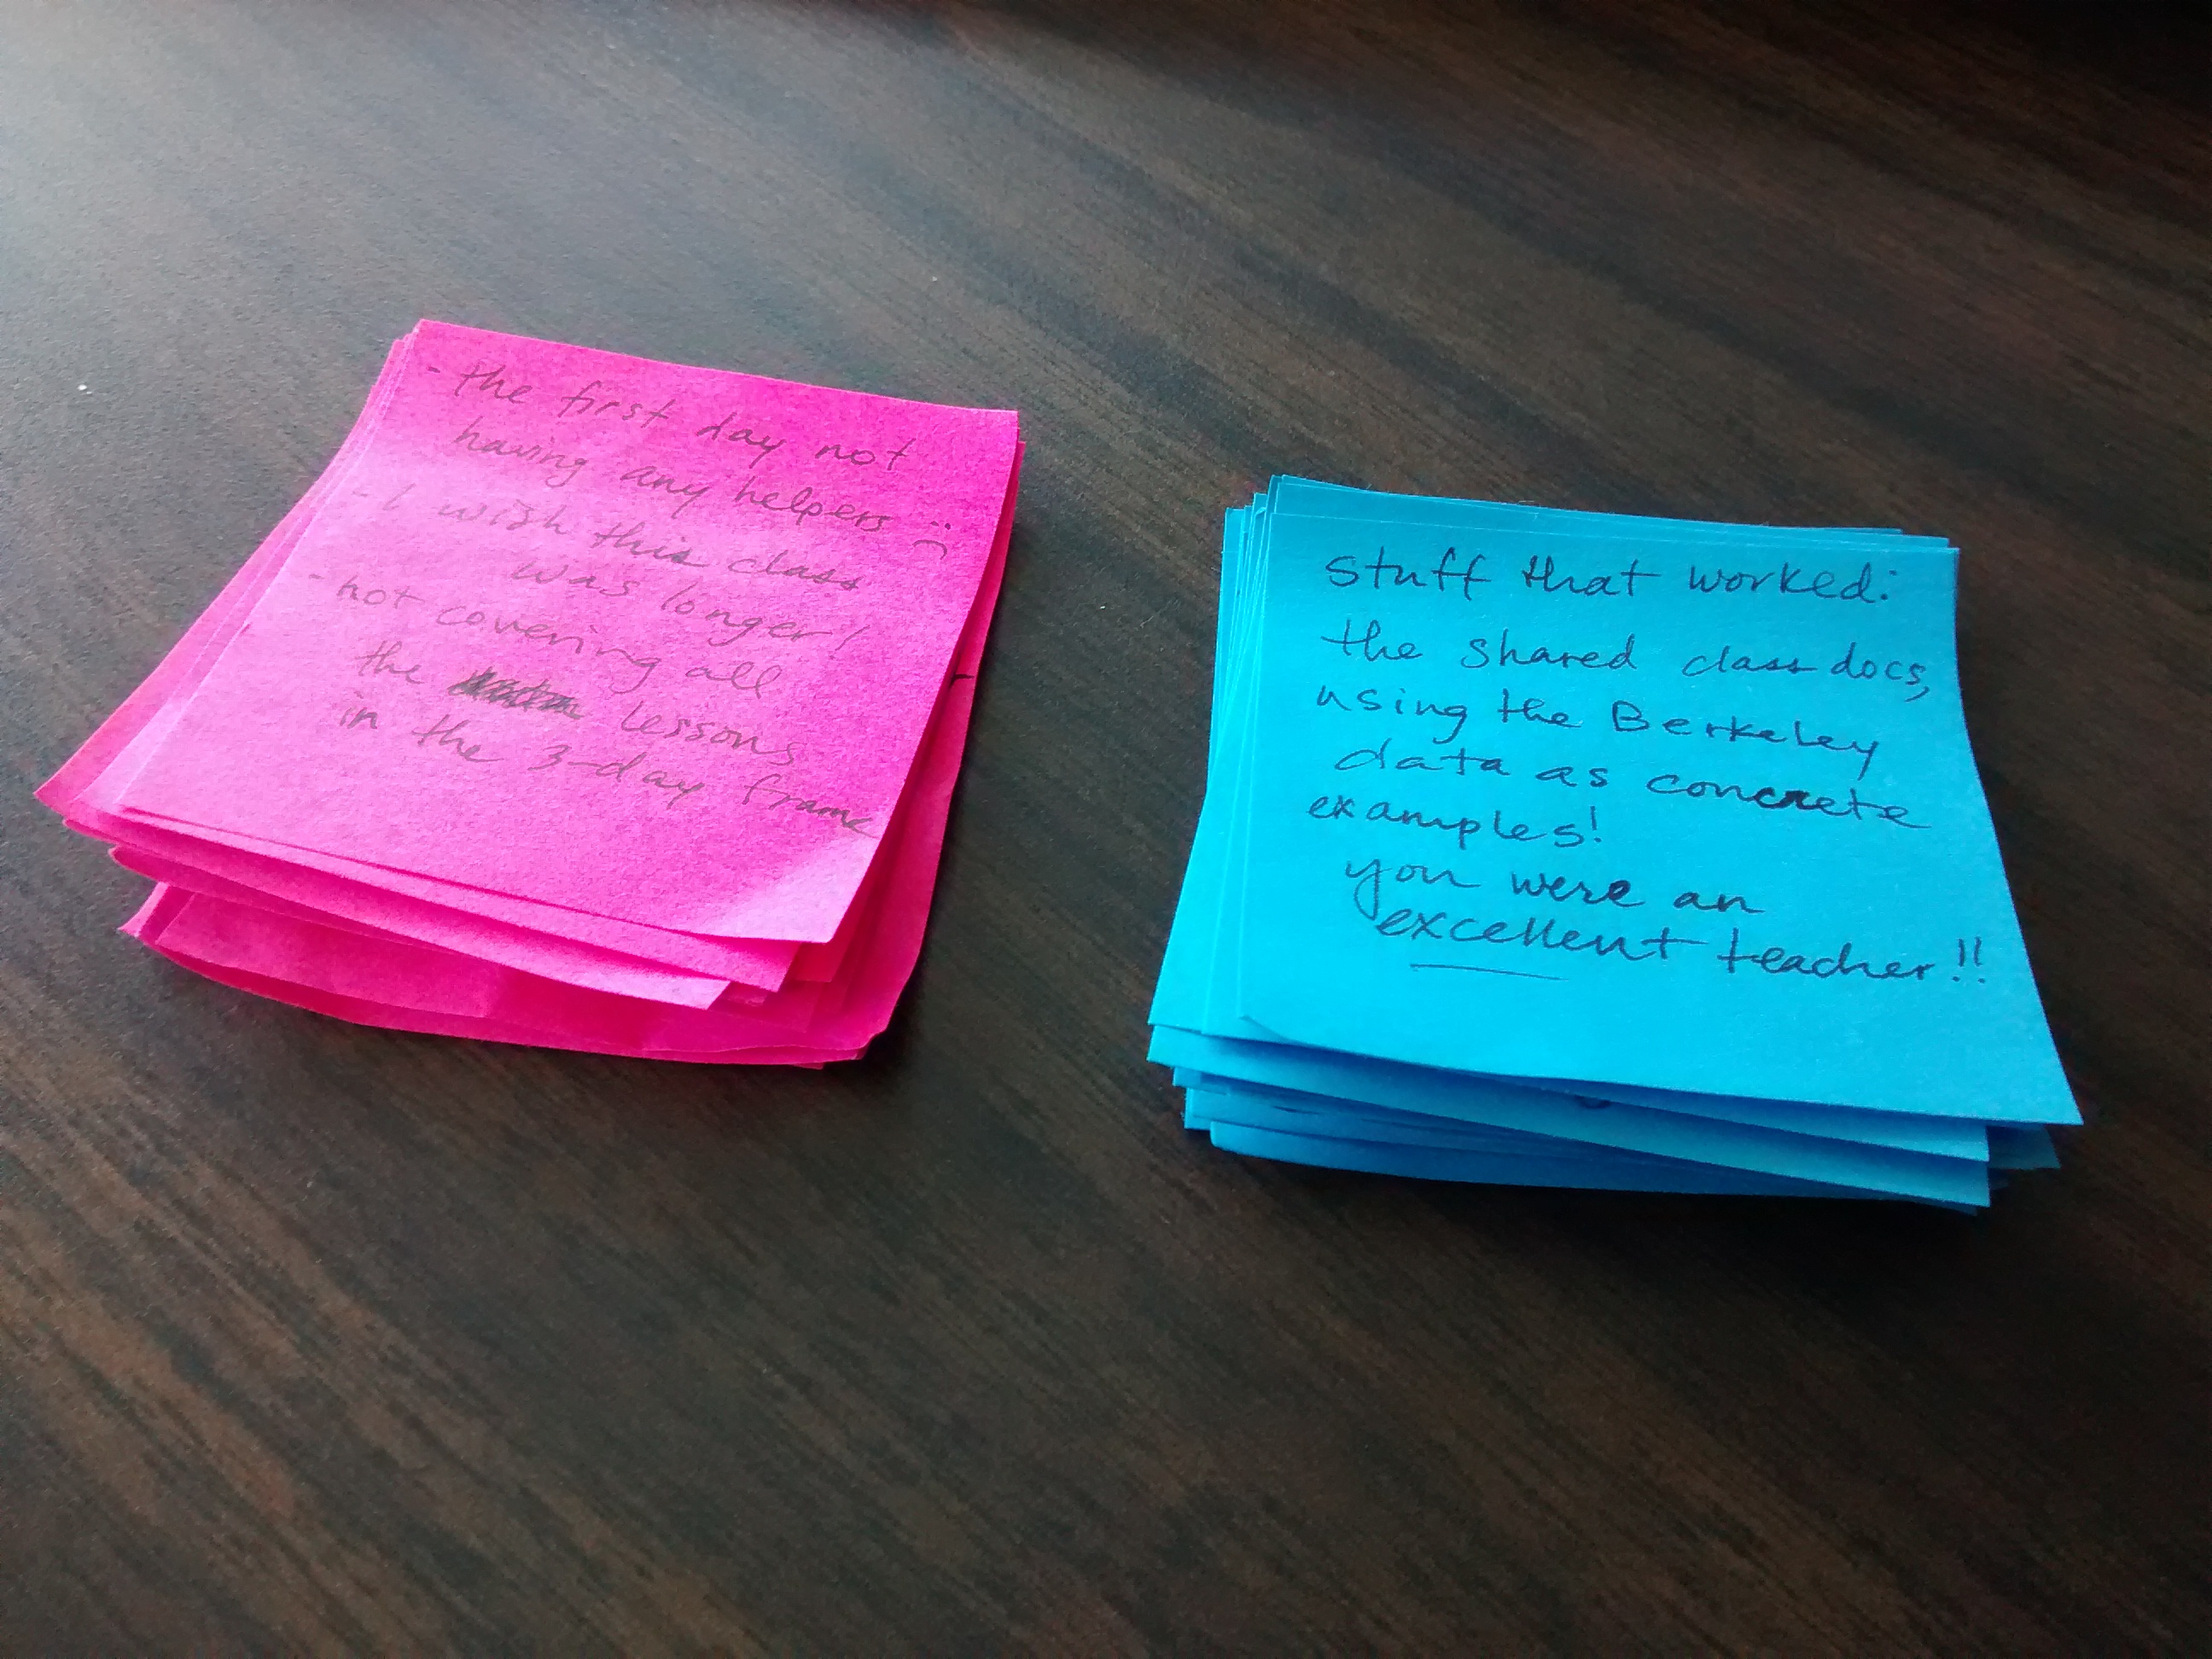 - the first day not
having any helpers :(
- I wish this class
was longer!
- not covering all
the lessons
in the 3-day frame
stuff that worked:
the shared class docs,
using the Berkeley
data as concrete
examples!
you were an
excellent teacher!!